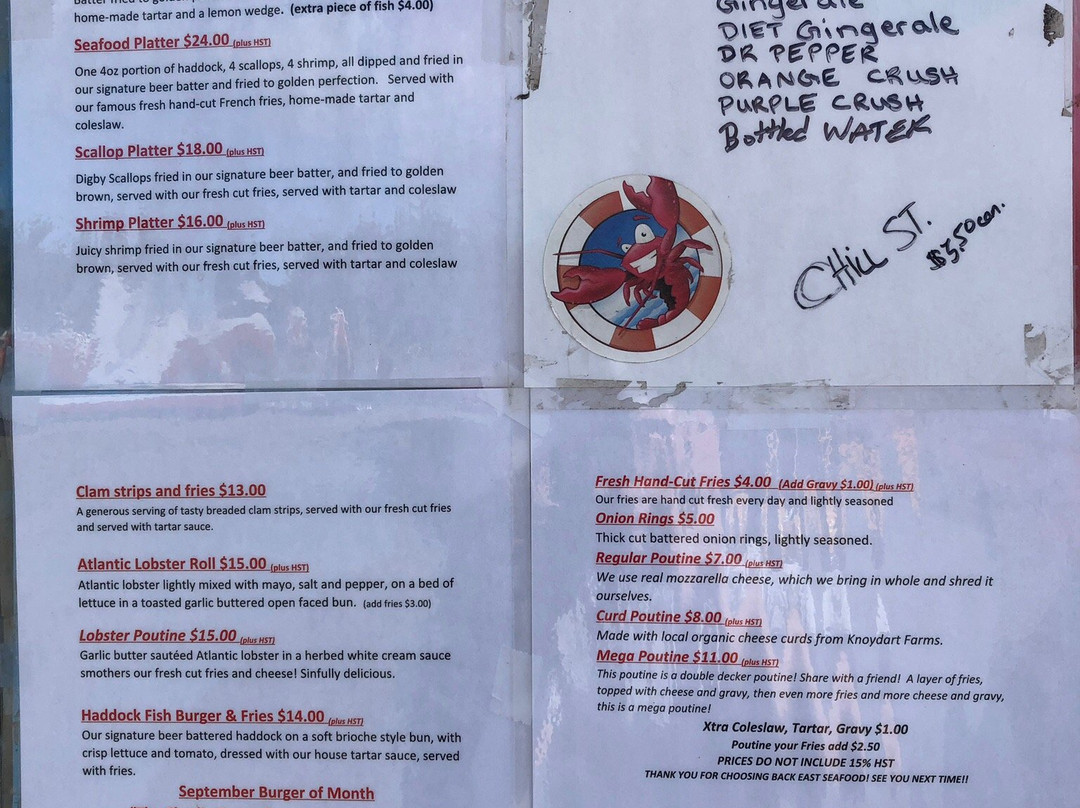 home-made tartar and a lemon wedge. (extra piece of fish $4.00)
Seafood Platter $24.00 (plus HST)
One 4oz portion of haddock, 4 scallops, 4 shrimp, all dipped and fried in
our signature beer batter and fried to golden perfection. Served with
our famous fresh hand-cut French fries, home-made tartar and
coleslaw.
Scallop Platter $18.00 (plus HST)
Digby Scallops fried in our signature beer batter, and fried to golden
brown, served with our fresh cut fries, served with tartar and coleslaw
Shrimp Platter $16.00 (plus HST)
Juicy shrimp fried in our signature beer batter, and fried to golden
brown, served with our fresh cut fries, served with tartar and coleslaw
Gingerale
DIET Gingerale
DR PEPPER
ORANGE CRUSH
PURPLE CRUSH
Bottled WATER
CHill ST.
$3.50 can.
Clam strips and fries $13.00
A generous serving of tasty breaded clam strips, served with our fresh cut fries
and served with tartar sauce.
Atlantic Lobster Roll $15.00 (plus HST)
Atlantic lobster lightly mixed with mayo, salt and pepper, on a bed of
lettuce in a toasted garlic buttered open faced bun. (add fries $3.00)
Lobster Poutine $15.00 (plus HST)
Garlic butter sautéed Atlantic lobster in a herbed white cream sauce
smothers our fresh cut fries and cheese! Sinfully delicious.
Haddock Fish Burger & Fries $14.00 (plus HST)
Our signature beer battered haddock on a soft brioche style bun, with
crisp lettuce and tomato, dressed with our house tartar sauce, served
with fries.
September Burger of Month
Fresh Hand-Cut Fries $4.00 (Add Gravy $1.00) (plus HST)
Our fries are hand cut fresh every day and lightly seasoned
Onion Rings $5.00
Thick cut battered onion rings, lightly seasoned.
Regular Poutine $7.00 (plus HST)
We use real mozzarella cheese, which we bring in whole and shred it
ourselves.
Curd Poutine $8.00 (plus HST)
Made with local organic cheese curds from Knoydart Farms.
Mega Poutine $11.00 (plus HST)
This poutine is a double decker poutine! Share with a friend! A layer of fries,
topped with cheese and gravy, then even more fries and more cheese and gravy,
this is a mega poutine!
Xtra Coleslaw, Tartar, Gravy $1.00
Poutine your Fries add $2.50
PRICES DO NOT INCLUDE 15% HST
THANK YOU FOR CHOOSING BACK EAST SEAFOOD! SEE YOU NEXT TIME!!